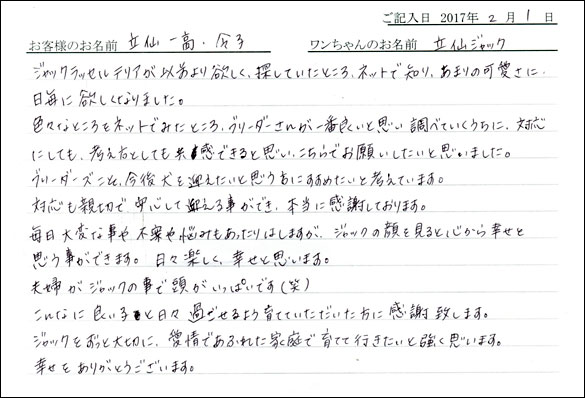 ご記入日 2017年 2月 1日
お客様のお名前 立仙 一高・ ワンちゃんのお名前 立仙ジャック
ジャックラッセルテリアが以前より欲しく、探していたところ、ネットで知り、あまりの可愛さに
日毎に欲しくなりました。
色々なところをネットでみたところ、ブリーダーさんが一番良いと思い調べていくうちに、対応
にしても、考え方としても共感できると思い、こちらでお願いしたいと思いました。
ブリーダーズこと、今後犬を迎えたいと思う方にすすめたいと考えています。
対応も親切で安心して迎える事ができ、本当に感謝しております。
毎日大変な事や不安や悩みもあったりはしますが、ジャックの顔を見ると、心から幸せと
思う事ができます。日々楽しく、幸せと思います。
夫婦がジャックの事で頭がいっぱいです(笑)
こんなに良い子と日々過ごせるよう育てていただいた方に感謝致します。
ジャックをずっと大切に、愛情であふれた家庭で育てて行きたいと強く思います。
幸せをありがとうございます。